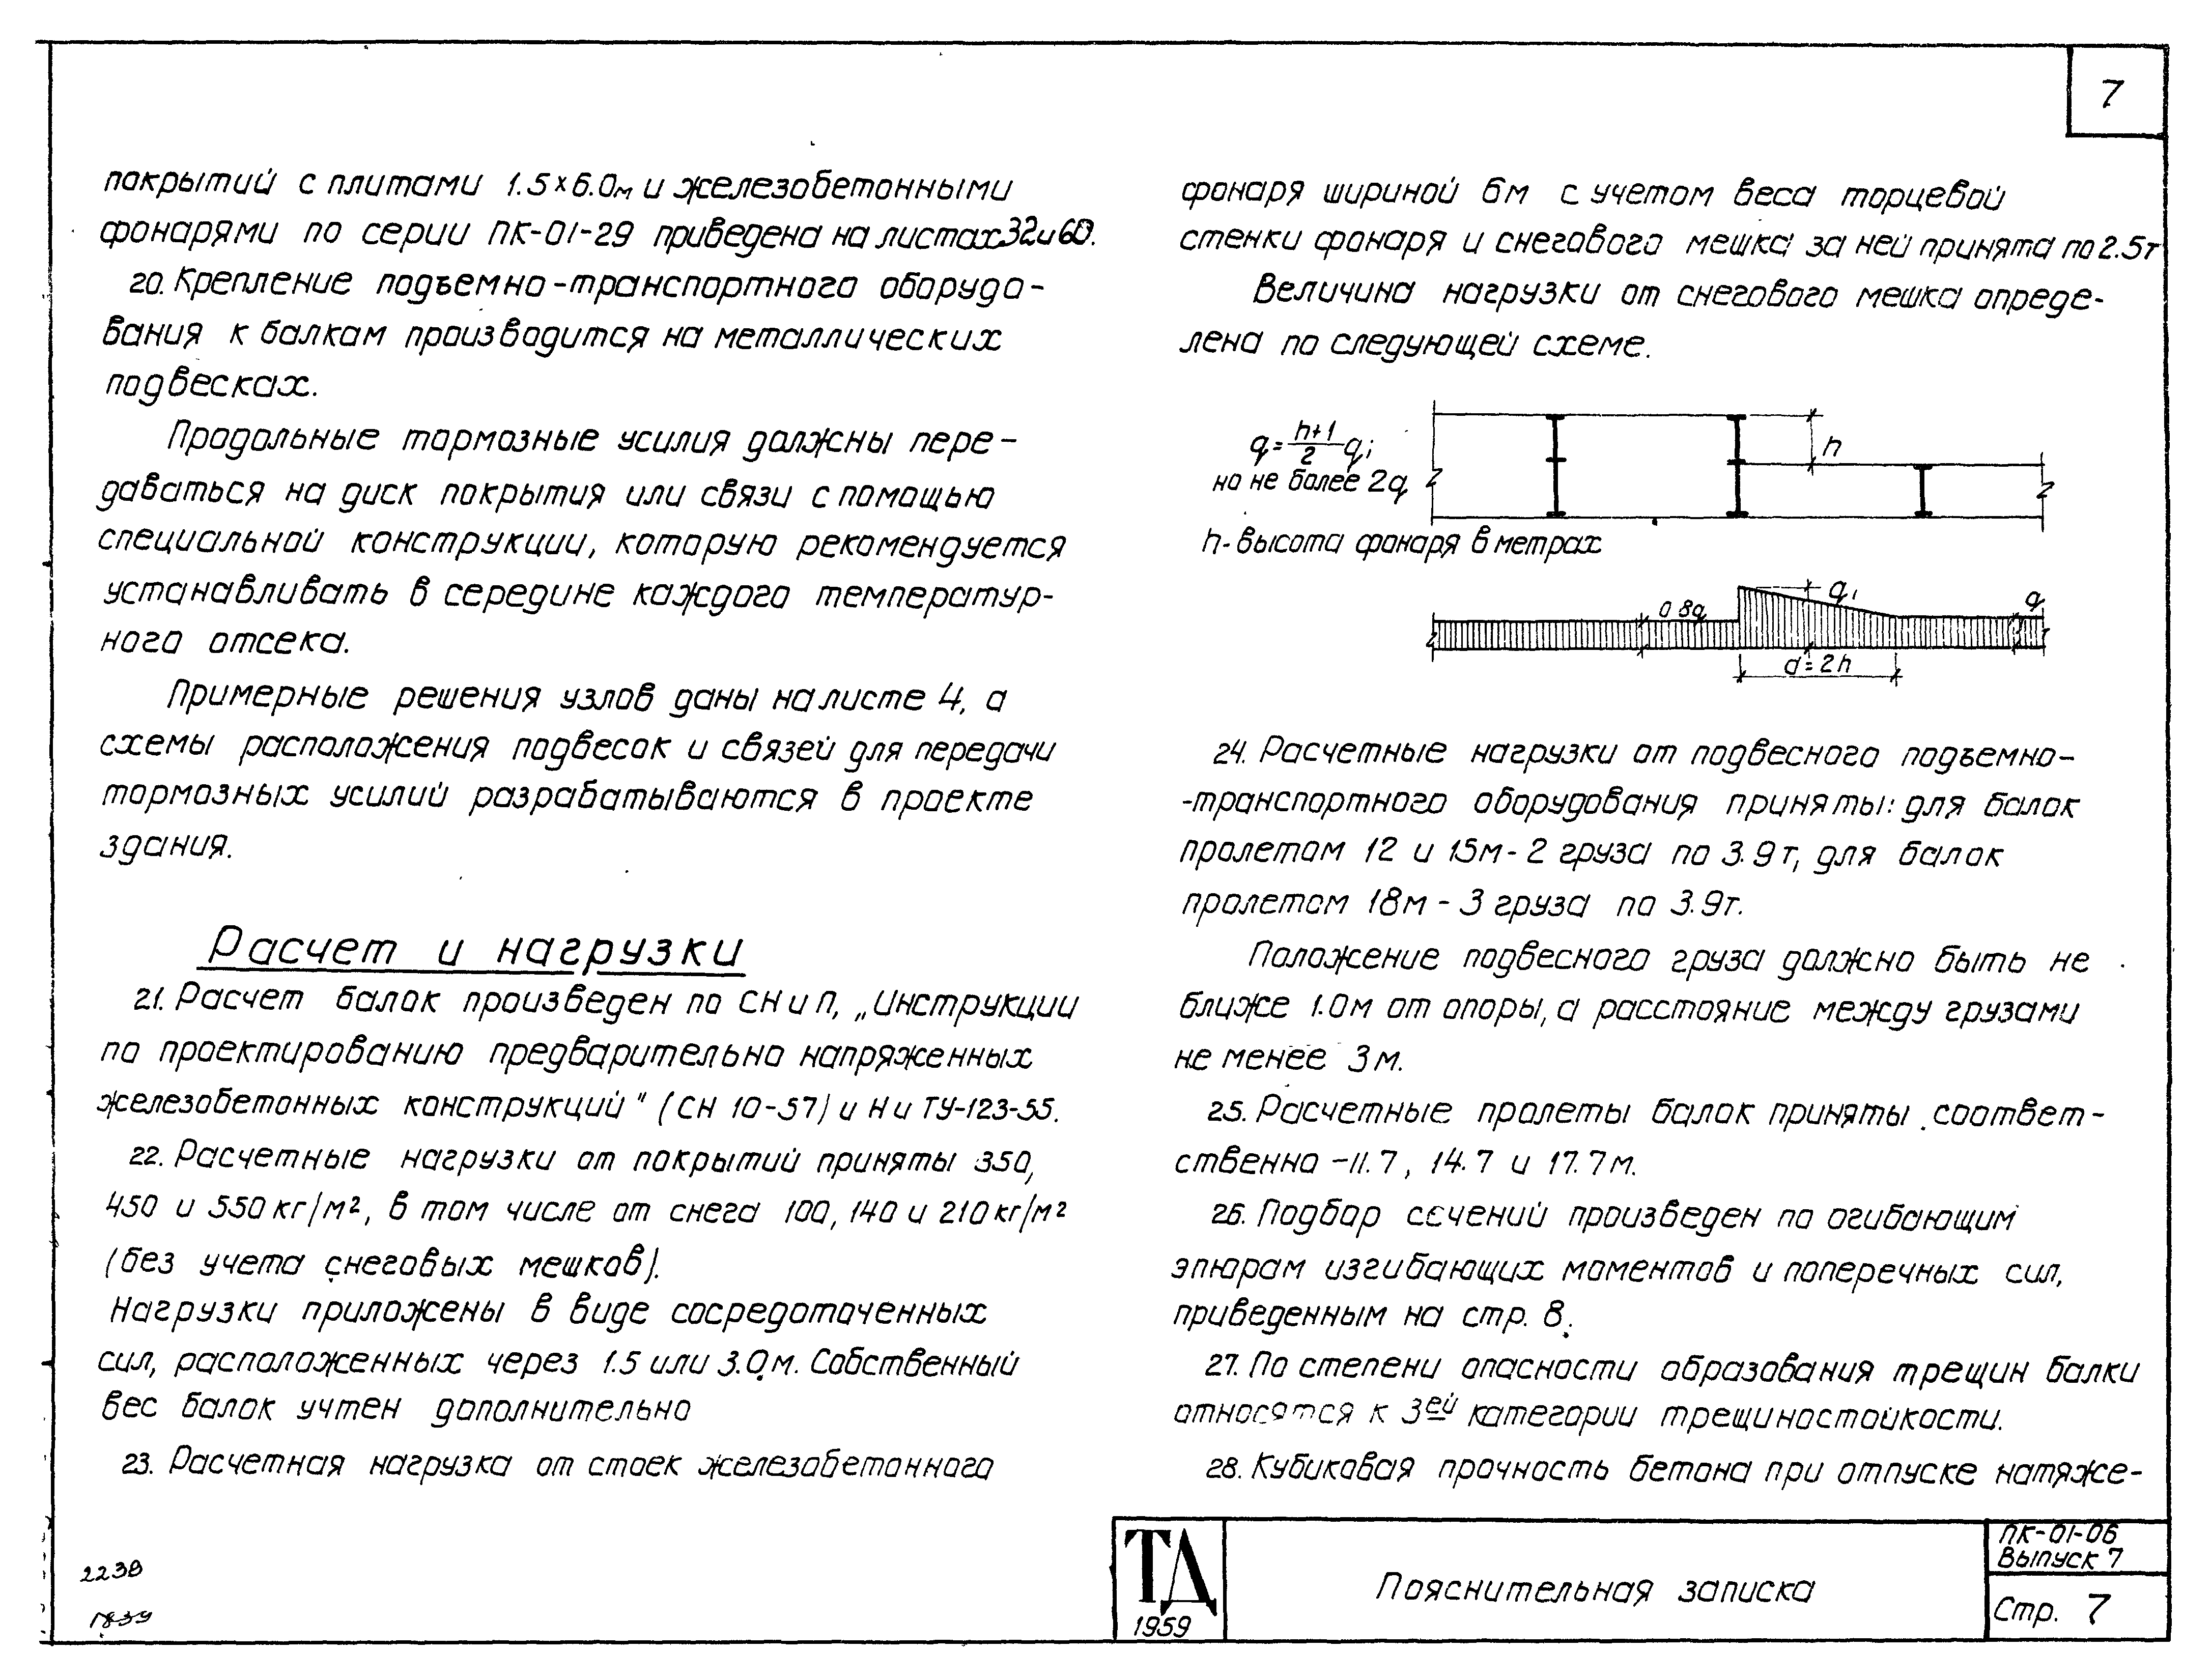 7
покрытий с плитами 1.5×6.0м и железобетонными
фонарями по серии ПК-01-29 приведена на листах 32 и 60.
20. Крепление подъемно-транспортного оборудо-
вания к балкам производится на металлических
подвесках.
Продольные тормозные усилия должны пере-
даваться на диск покрытия или связи с помощью
специальной конструкции, которую рекомендуется
устанавливать в середине каждого температур-
ного отсека.
Примерные решения узлов даны на листе 4, а
схемы расположения подвесок и связей для передачи
тормозных усилий разрабатываются в проекте
здания.
Расчет и нагрузки
21. Расчет балок произведен по СН и П, „Инструкции
по проектированию предварительно напряженных
железобетонных конструкций" (СН 10-57) и Н и ТУ-123-55.
22. Расчетные нагрузки от покрытий приняты 350,
450 и 550 кг/м², в том числе от снега 100, 140 и 210 кг/м²
(без учета снеговых мешков).
Нагрузки приложены в виде сосредоточенных
сил, расположенных через 1.5 или 3.0 м. Собственный
вес балок учтен дополнительно
23. Расчетная нагрузка от стоек железобетонного
фонаря шириной 6м с учетом веса торцевой
стенки фонаря и снегового мешка за ней принята по 2.5т
Величина нагрузки от снегового мешка опреде-
лена по следующей схеме.
q = h+1/2 q;
но не более 2q
h
h - высота фонаря в метрах
0.8q
q₁
q
a = 2h
24. Расчетные нагрузки от подвесного подъемно-
-транспортного оборудования приняты: для балок
пролетом 12 и 15м - 2 груза по 3.9т, для балок
пролетом 18м - 3 груза по 3.9т.
Положение подвесного груза должно быть не
ближе 1.0м от опоры, а расстояние между грузами
не менее 3м.
25. Расчетные пролеты балок приняты соответ-
ственно - 11.7, 14.7 и 17.7м.
26. Подбор сечений произведен по огибающим
эпюрам изгибающих моментов и поперечных сил,
приведенным на стр. 8.
27. По степени опасности образования трещин балки
относятся к 3ей категории трещиностойкости.
28. Кубиковая прочность бетона при отпуске натяже-
ТД
1959
Пояснительная записка
ПК-01-06
Выпуск 7
Стр. 7
2238
1839